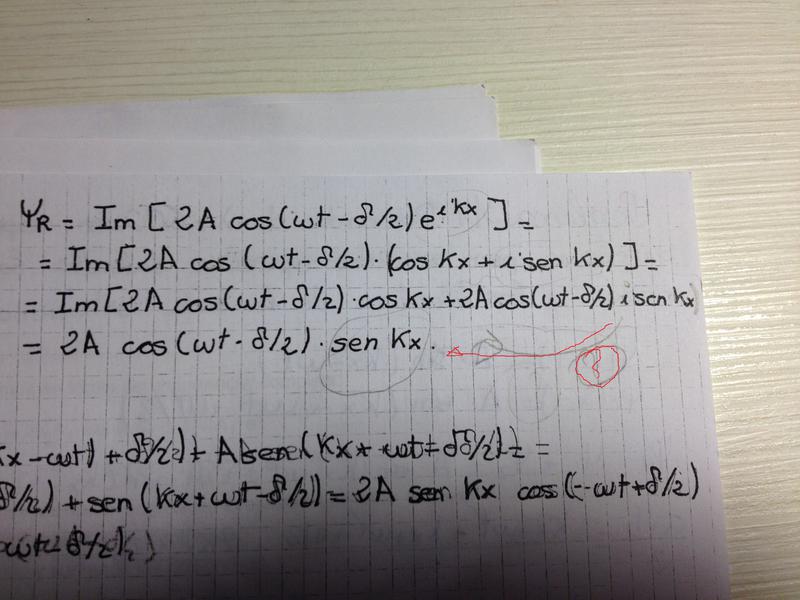 Ψ_R = Im [ 2A cos(ωt - δ/2) e^{i kx} ] =
= Im [ 2A cos (ωt - δ/2) · (cos kx + i sen kx) ] =
= Im [ 2A cos(ωt - δ/2) · cos kx + 2A cos(ωt - δ/2) i sen kx
= 2A cos(ωt - δ/2) · sen kx.
x - ωt) + δ/2
δ/2) + sen (kx + ωt - δ/2) = 2A sen kx cos (-ωt + δ/2)